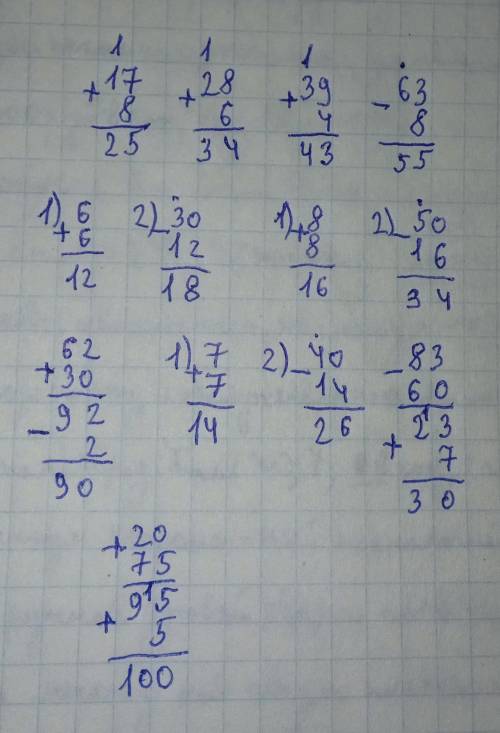 1 1 1 .
+17 +28 +39 -63
8 6 4 8
25 34 43 55
1) 6 2) -30 1) 8 2) -50
+6 12 +8 16
12 18 16 34
62 1) 7 2) -40 -83
+30 +7 14 60
92 14 26 23
-2 +7
90 30
+20
75
95
+5
100